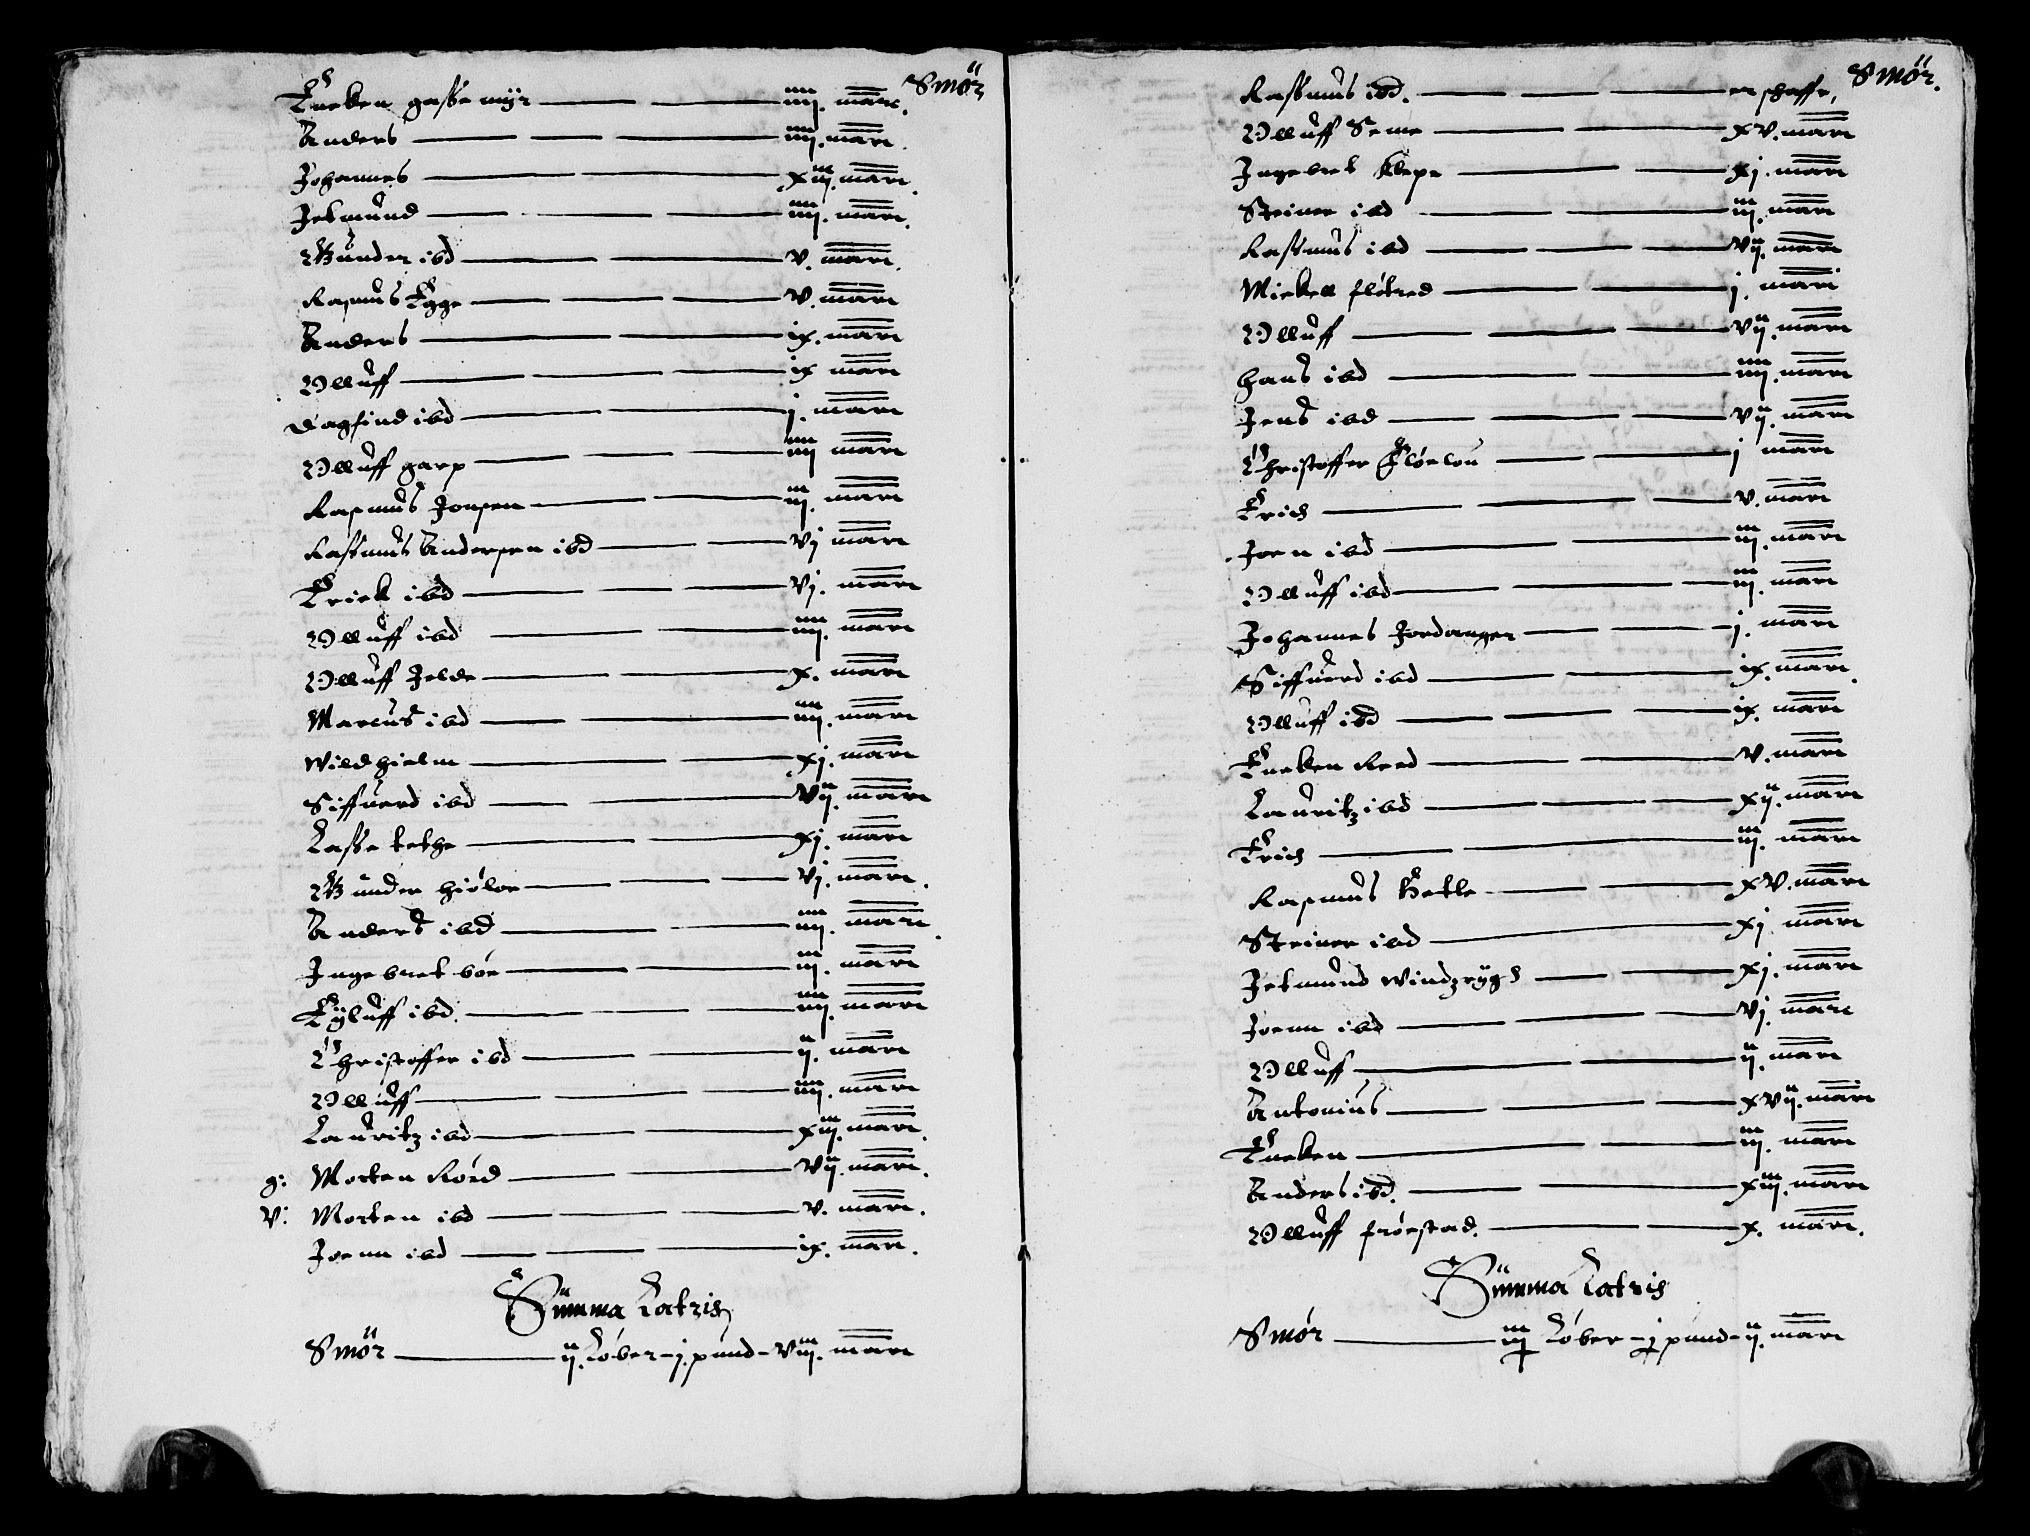 Smör
Encken gassemyr — iiij. marc.
Anders — iiij. marc.
Johannes — xiij. marc.
Jetmund — iiij. marc.
Gunder ibd — v. marc.
Rasmus Egge — v. marc
Anders — ix. marc
Olluff — ix marc
Dagfind ibd — j. marc
Olluff garp — iiij marc
Rasmus Jonsen — iij. marc
Rassmus Andersen ibd — vj marc
Erick ibd — vj. marc
Olluff ibd — iiij. marc
Olluff Jelde — x. marc
Marcus ibd — iiij. marc
Wildhielm — xj. marc
Siffuerd ibd — vij. marc
Lasse tethe — xj. marc
Gunder hiölor — vj. marc.
Anders ibd — iiij. marc.
Ingebret böe — iij. marc
Eyluff ibd. — iiij. marc
Christoffer ibd — ij. marc
Olluff — iiij. marc
Lauritz ibd — xiij. marc.
g: Morten Röed — vij. marc.
V: Morten ibd — v. marc.
Joenn ibd — ix. marc.
Summa Latris
Smör — ij. Löber – j. pund – viij. marc
Smör.
Rassmus ibd. — er
Olluff Seme — xv. marc
Ingebret Klepe — xj. marc
Steiner ibd — iij. marc
Rassmus ibd — vij. marc
Mickell flötred — j. marc
Olluff — vij. marc
Hans ibd — iiij. marc
Jens ibd — vij. marc
Christoffer Flöelou — j marc
Erich — v. marc
Joen ibd — iij. marc
Olluff ibd — iij. marc
Johannes Jordanger — j. marc
Siffuerd ibd — ix. marc.
Olluff ibd — ix. marc
Encken Reed — v. marc
Lauritz ibd — xij. marc
Erich — iij. marc
Rasmus Hetle — xv. marc
Steiner ibd — xj marc
Jetmund Windzrygh — xj. marc
Joenn ibd — vj. marc
Olluff — ij. marc
Antonius — xvij. marc
Encken — iij. marc
Anders ibd. — xiij. marc
Olluff fröestad. — x. marc.
Summa Latris
Smör — iiij Löber – j pund – ij. marc